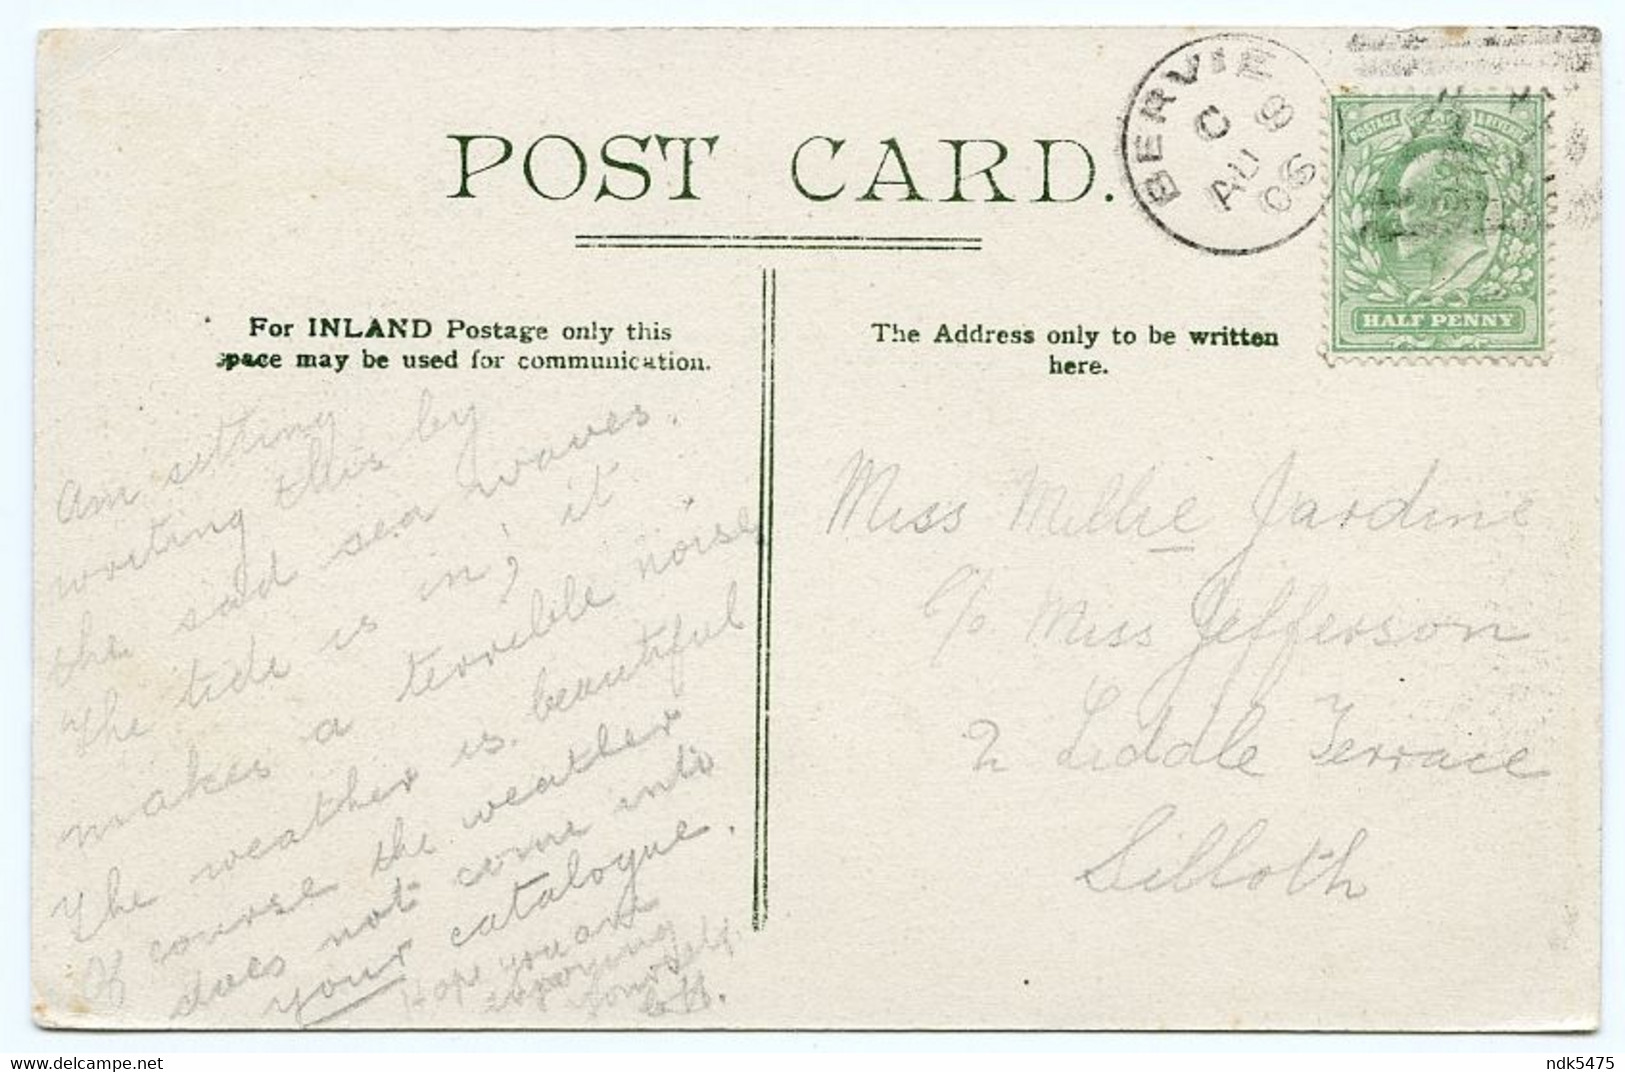 POST CARD.
BERVIE
C
AU 8
06
POSTAGE & REVENUE
HALF PENNY
For INLAND Postage only this
space may be used for communication.
The Address only to be written
here.
Am sitting
writing this by
the sad sea waves.
The tide is in; it
makes a terrible noise
The weather is beautiful
Of course the weather
does not come into
your catalogue.
Hope you are
enjoying
yourself.
Miss Millie Jardine
c/o Miss Jefferson
2 Liddle Terrace
Silloth
delcampe.net
ndk5475